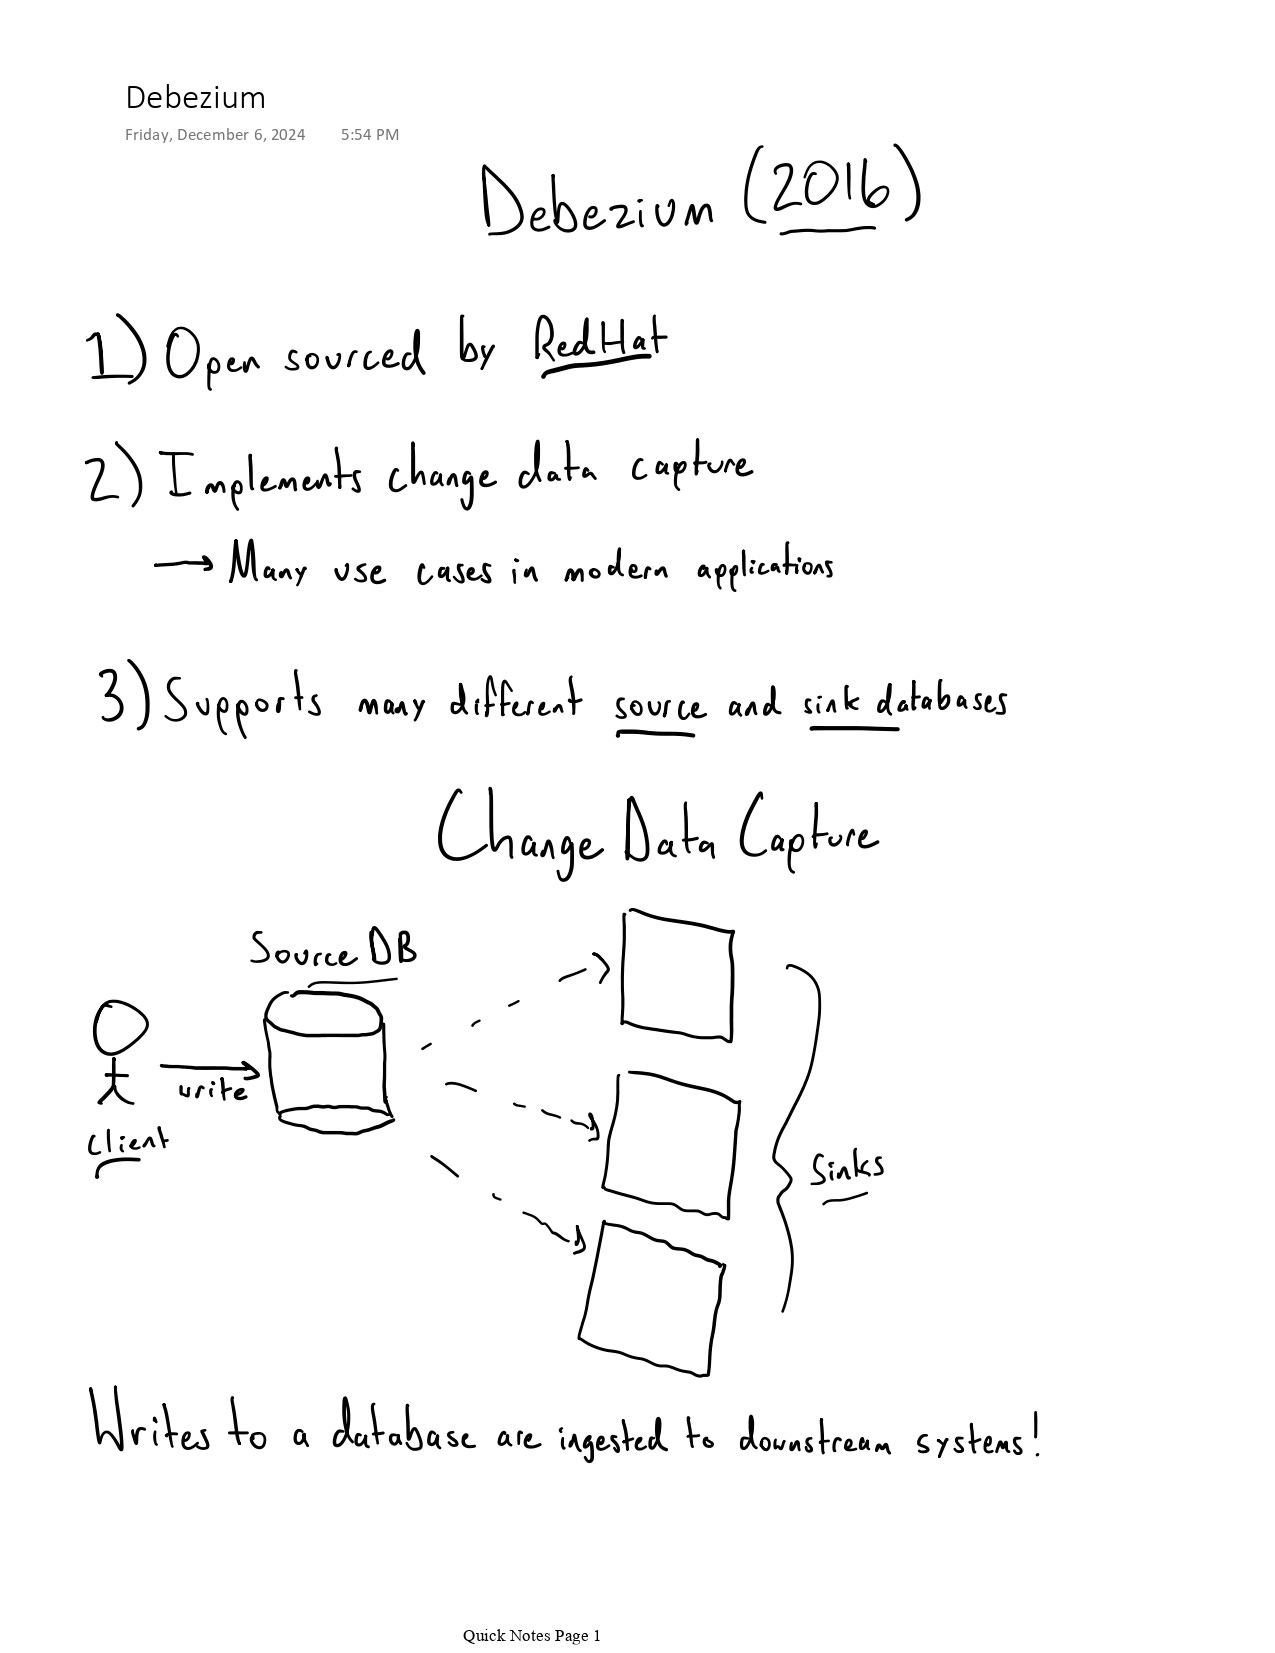 Debezium
Friday, December 6, 2024 5:54 PM
Debezium (2016)
1) Open sourced by RedHat
2) Implements change data capture
→ Many use cases in modern applications
3) Supports many different source and sink databases
Change Data Capture
Source DB
write
Client
Sinks
Writes to a database are ingested to downstream systems!
Quick Notes Page 1